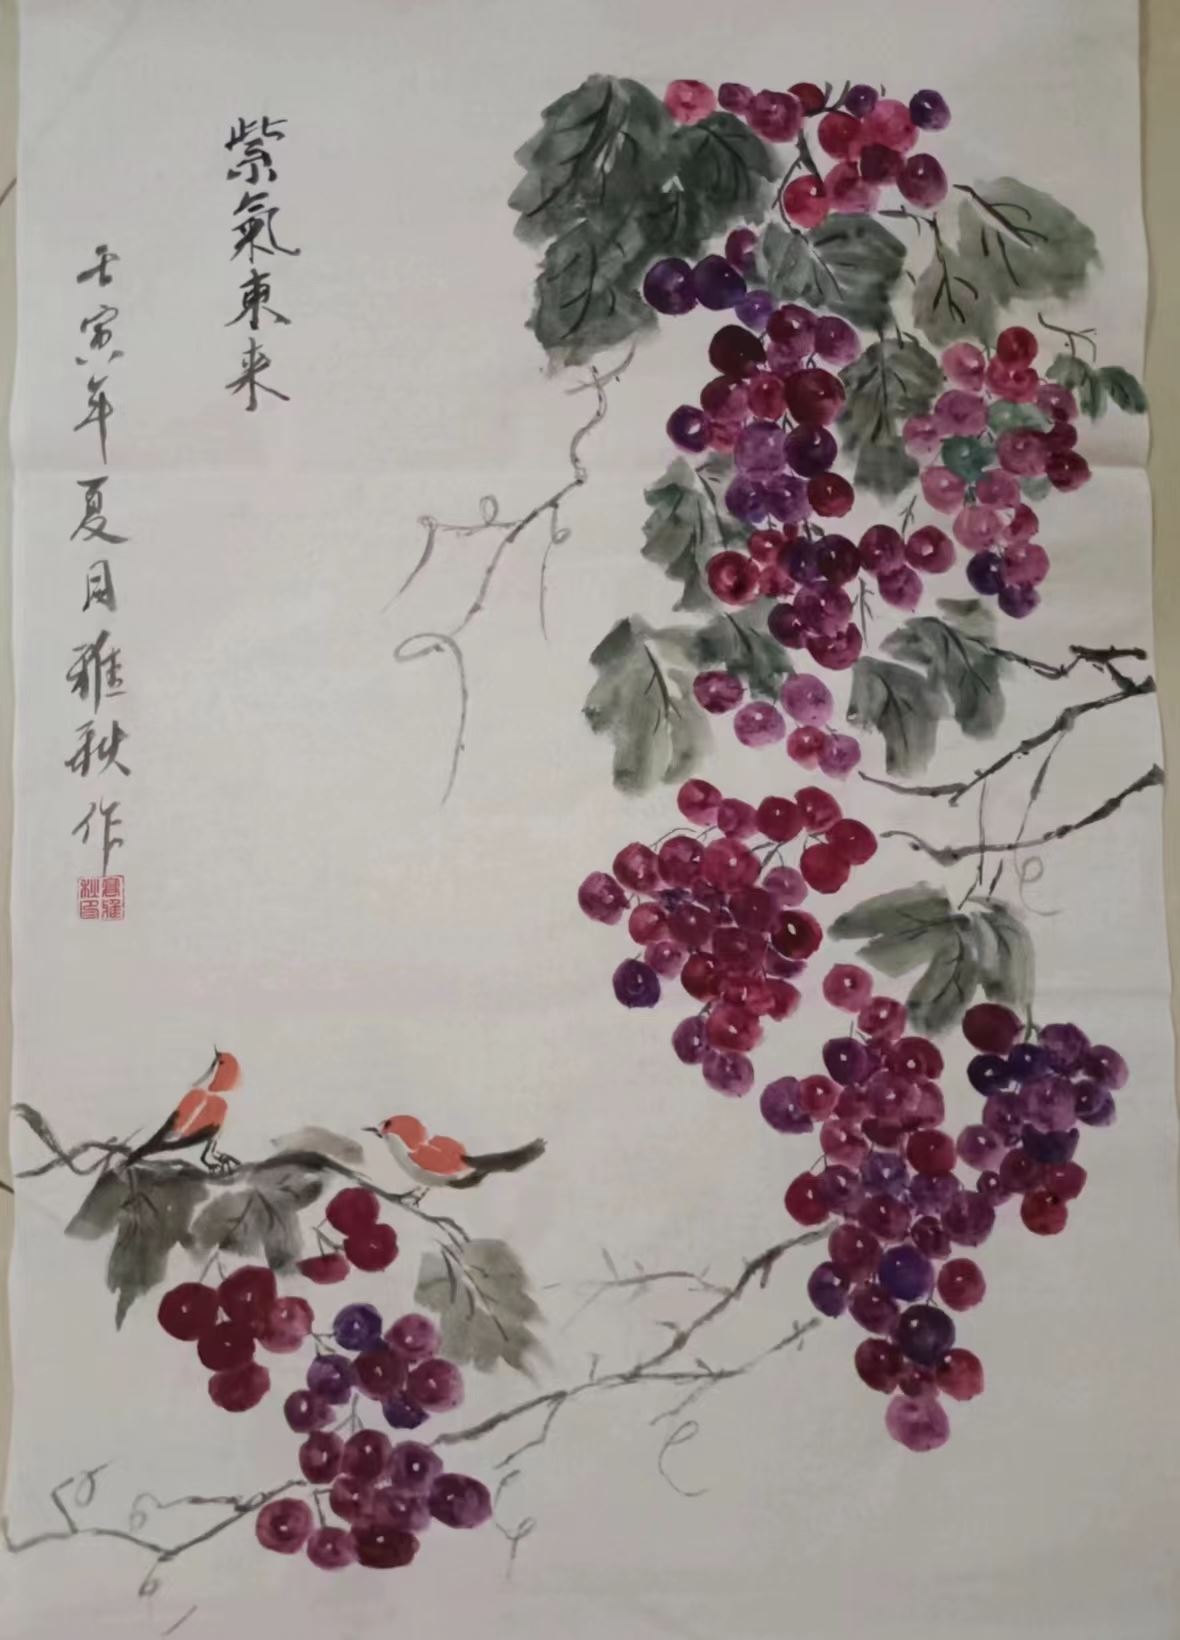 紫氣東来
壬寅年夏月雅秋作